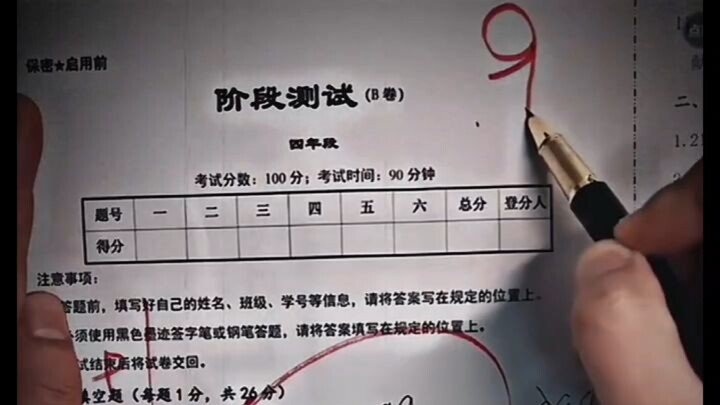 9
保密★启用前
阶段测试（B卷）
四年段
考试分数：100分；考试时间：90分钟
题号 一 二 三 四 五 六 总分 登分人
得分
注意事项：
答题前，填写好自己的姓名、班级、学号等信息，请将答案写在规定的位置上。
须使用黑色墨迹签字笔或钢笔答题，请将答案填写在规定的位置上。
试结束后将试卷交回。
填空题（每题1分，共26分）
二、